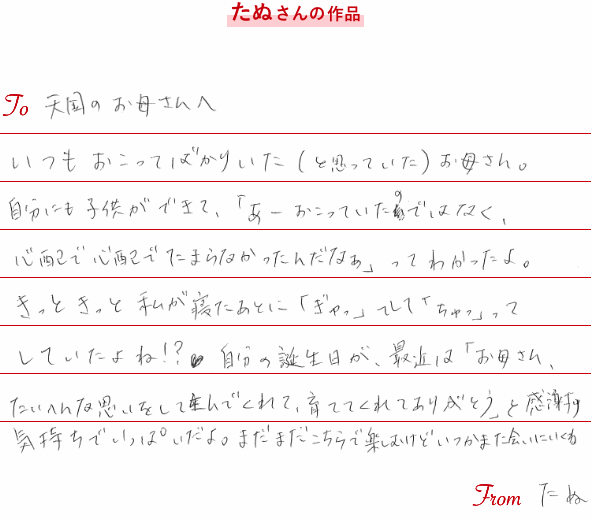 たぬさんの作品
To 天国のお母さんへ
いつもおこってばかりいた(と思っていた)お母さん。
自分にも子供ができて、「あーおこっていたのではなく、
心配で心配でたまらなかったんだなぁ」ってわかったよ。
きっときっと私が寝たあとに「ぎゃっ」てして「ちゅっ」って
していたよね!? 自分の誕生日が、最近は「お母さん、
たいへんな思いをして生んでくれて、育ててくれてありがとう」と感謝する
気持ちでいっぱいだよ。まだまだこちらで楽しむけどいつかまた会いにいくね
From たぬ